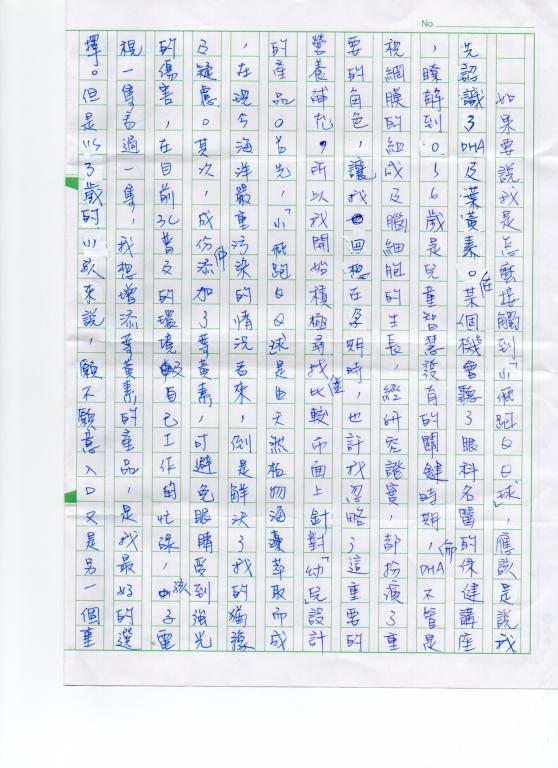 No.
如果要說我是怎麼接觸到「小飛跑QQ球」,應該是說我
先認識了DHA及葉黃素。在某個機會聽了眼科名醫的保健講座
,瞭解到0~6歲是兒童智慧發育的關鍵時期,而DHA不管是
視網膜的組成及腦細胞的生長,經研究證實,都扮演了重
要的角色,讓我回想在孕期時,也許我忽略了這重要的
營養補充,所以我開始積極尋找比較市面上針對「幼兒」設計
的產品。首先,「小飛跑QQ球是由天然植物海藻萃取而成
,在現今海洋嚴重污染的情況看來,倒是解決了我的猶豫
及疑慮。其次,成份中添加了葉黃素,可避免眼睛受到強光
的傷害,在目前3C普及的環境自己工作的忙碌,孩子電
視一隻看過一隻,我想增添葉黃素的產品,是我最好的選
擇。但是以3歲的小孩來說,願不願意入口又是另一個重